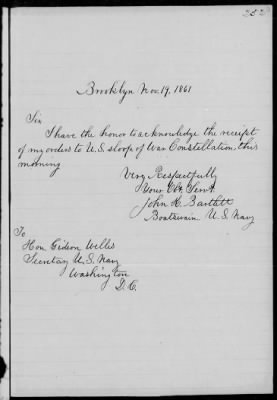 252
Brooklyn Nov. 19, 1861
Sir
I have the honor to acknowledge the receipt
of my orders to U.S. sloop of War Constellation this
morning
Very Respectfully
Your Obt. Servt.
John K. Bartlett
Boatswain U.S. Navy
To
Hon. Gideon Welles
Secretay U.S. Navy
Washington
D.C.